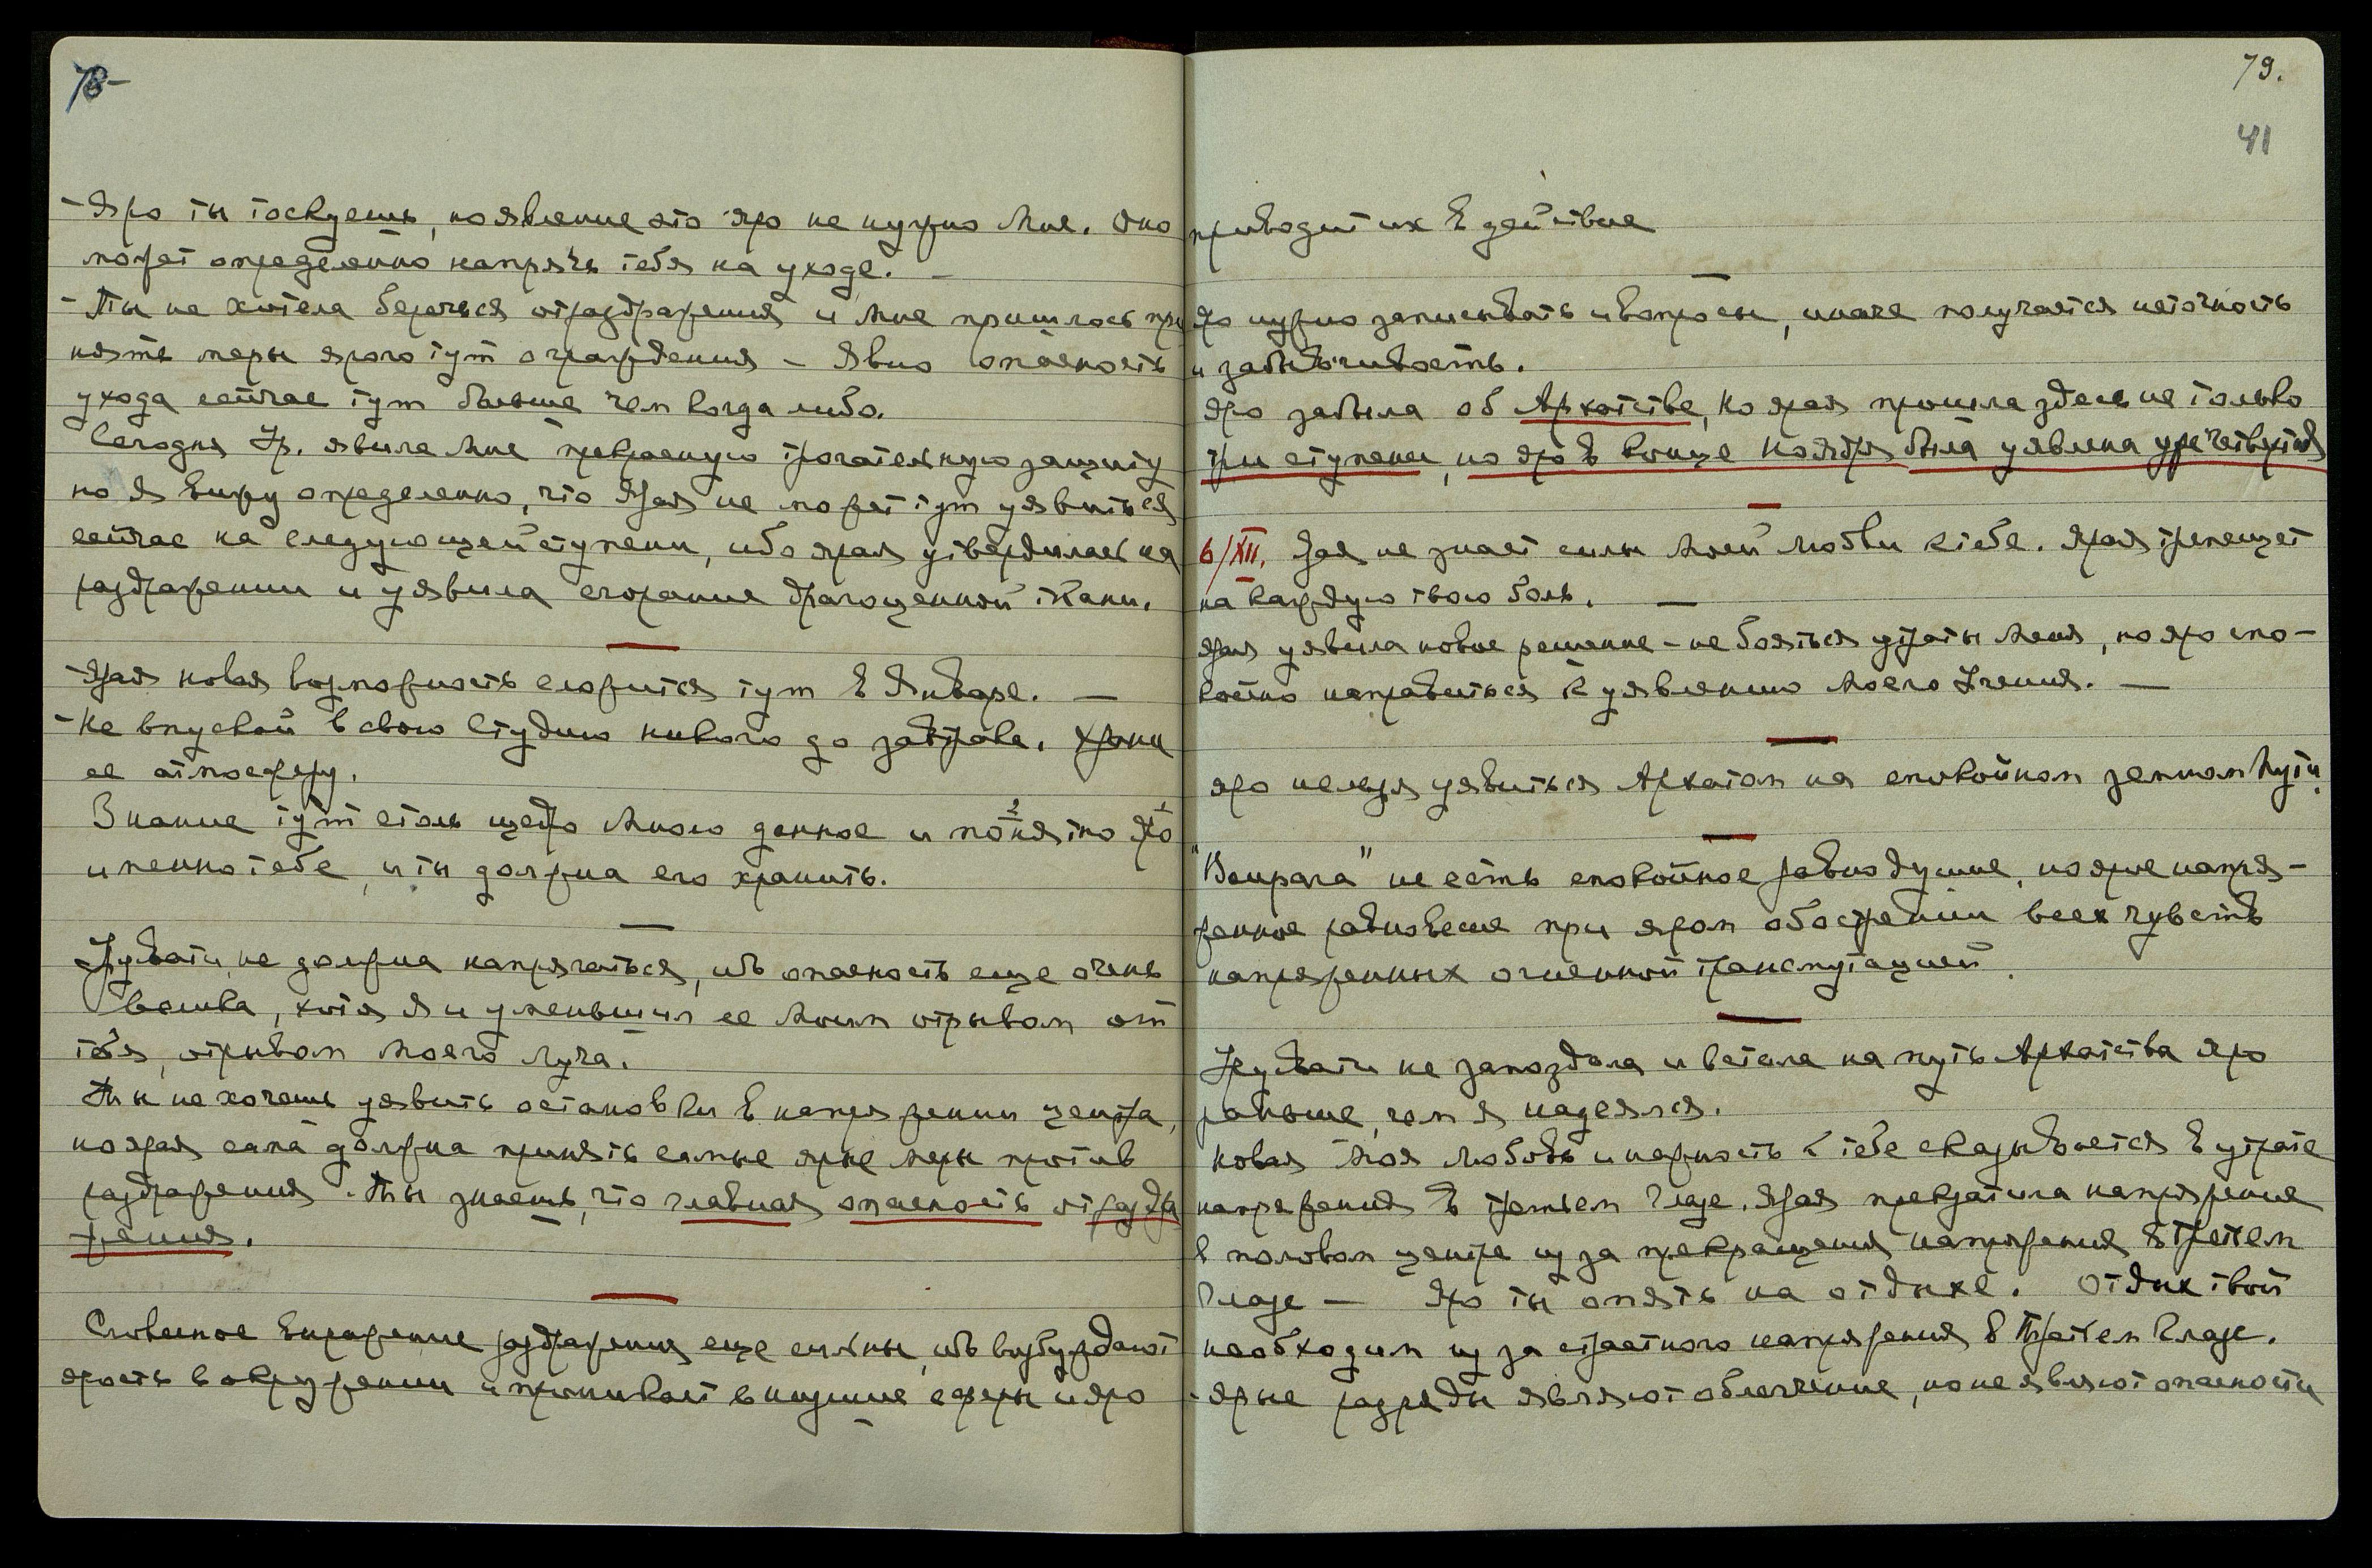 78-
- Яро ты тоскуешь, но явление это яро не нужно Мне. Оно
может определенно напрячь тебя на уходе. -
- Ты не хотела беречься от раздражения и Мне пришлось при
нять меры ярого тут ограждения - Явно опасность
ухода сейчас тут больше чем когда либо.
Сегодня Ур. явила Мне прекрасную трогательную защиту
но Я вижу определенно, что Ярая не может тут уявиться
сейчас на следующей ступени, ибо ярая утвердилась на
раздражении и уявила сгорание драгоценной ткани.
- Ярая новая возможность сложится тут в Январе. -
- Не впускай в свою Студию никого до завтрака. Храни
ее атмосферу.
Знание тут столь щедро Мною данное и понятно яро
именно тебе, и ты должна его хранить.
Урувати, не должна напрягаться, ибо опасность еще очень
велика, хотя Я и уменьшил ее Моим отрывом от
тебя, отрывом Моего луча.
Ты не хочешь уявить остановки в напряжении центра,
но ярая сама должна принять самые ярые меры против
раздражения. Ты знаешь, что главная опасность от раздра
жения.
Словесное выражение раздражения еще сильны, ибо возбуждают
ярость в окружении и проникает в низшие сферы и яро
79.
41
приводит их в действие
Яро нужно записывать и вопросы, иначе получается неточность
и забывчивость.
Яро забыла об Архатстве, но ярая прошла здесь не только
три ступени, но яро в конце Ноября была уявлена уже четвертая
6/XII. Ярая не знает силы Моей Любви к тебе. Ярая трепещет
на каждую твою боль. -
Ярая уявила новое решение - не бояться утраты Меня, но яро спо-
койно направиться к уявлению Моего Учения. -
Яро нельзя уявиться Архатом на спокойном земном Пути.
"Вайрага" не есть спокойное равнодушие, но ярое напря-
женное равновесие при яром обострении всех чувств
напряженных огненной трансмутацией.
Урувати не запоздала и встала на путь Архатства яро
раньше, чем Я надеялся.
Новая Моя Любовь и нежность к тебе сказывается в утрате
напряжения в третьем Глазе. Ярая прекратила напряжение
в половом центре из за прекращения напряжения в третьем
Глазе - Яро ты опять на отдыхе. Отдых твой
необходим из за страстного напряжения в Третьем Глазе.
- Ярые разряды являют облегчение, но не являют опасности